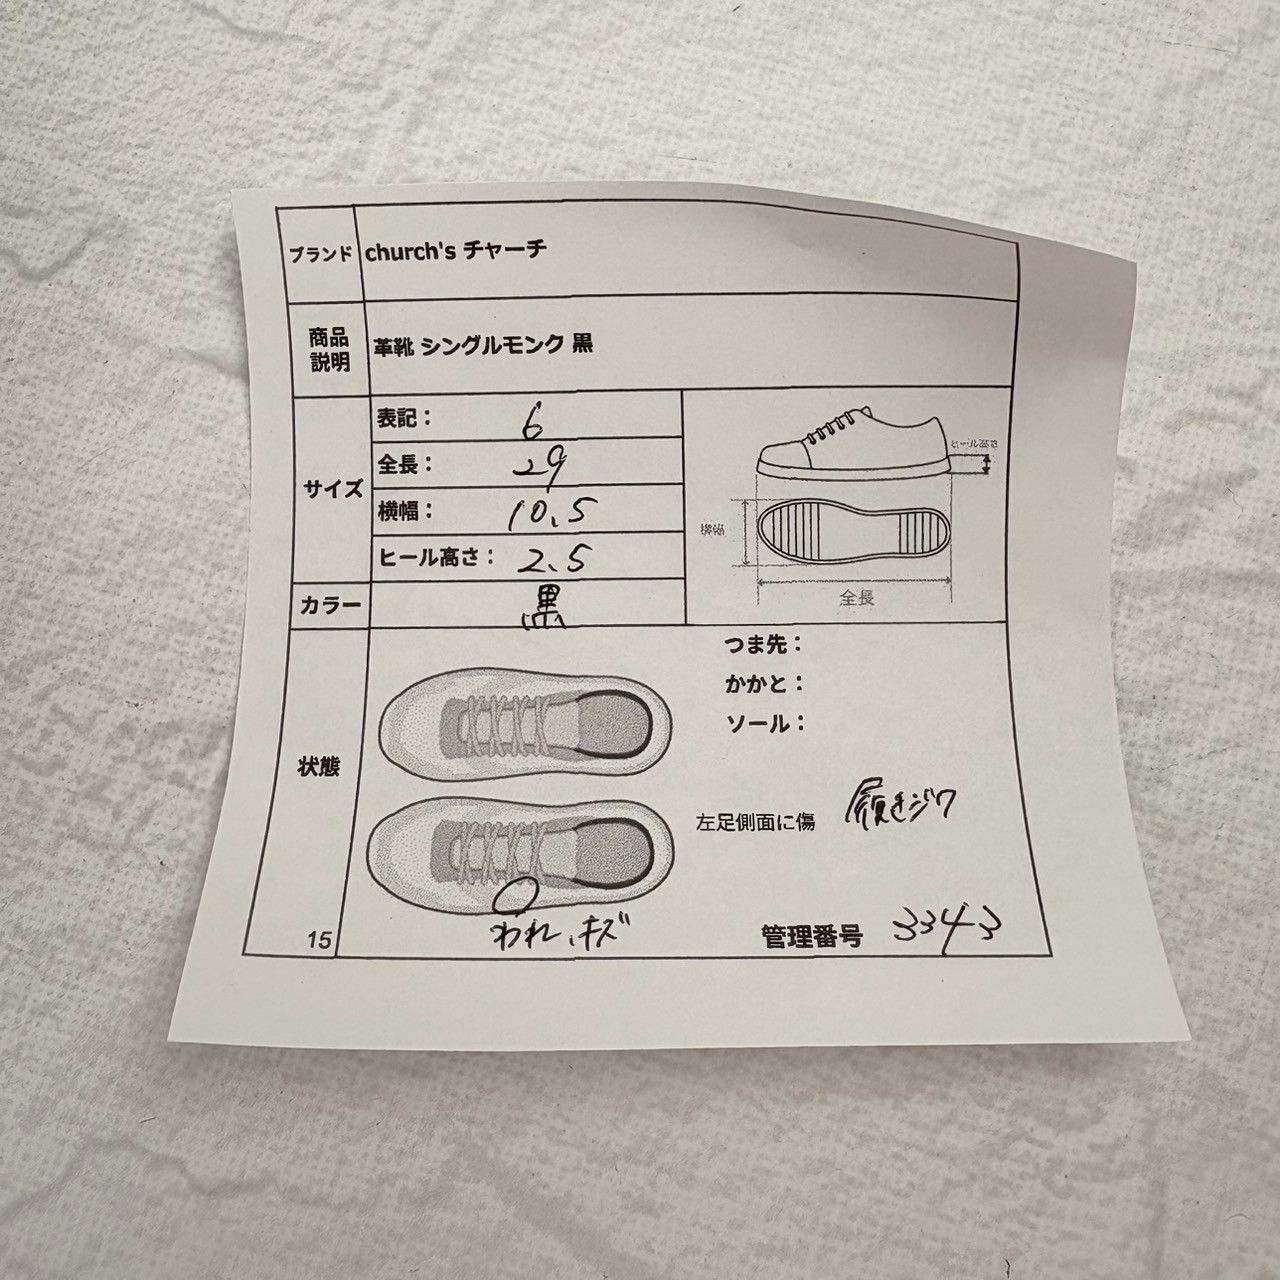 ブランド church's チャーチ
商品説明 革靴 シングルモンク 黒
サイズ
表記： 6
全長： 29
横幅： 10.5
ヒール高さ： 2.5
ヒール高さ
横幅
全長
カラー 黒
状態
つま先：
かかと：
ソール：
左足側面に傷 履きジワ
われ、キズ
15
管理番号 3343